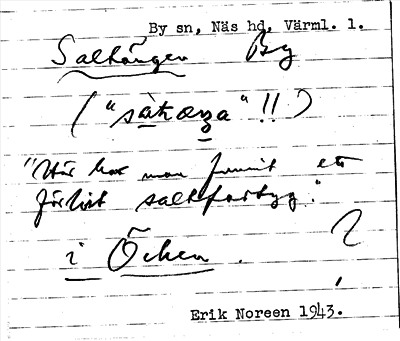 By sn, Näs hd, Värml. l.
Saltängen By
("sàtæŋa"!!)
"Här har man funnit ett
förlist saltfartyg."
i Ölmen.
?
Erik Noreen 1943.